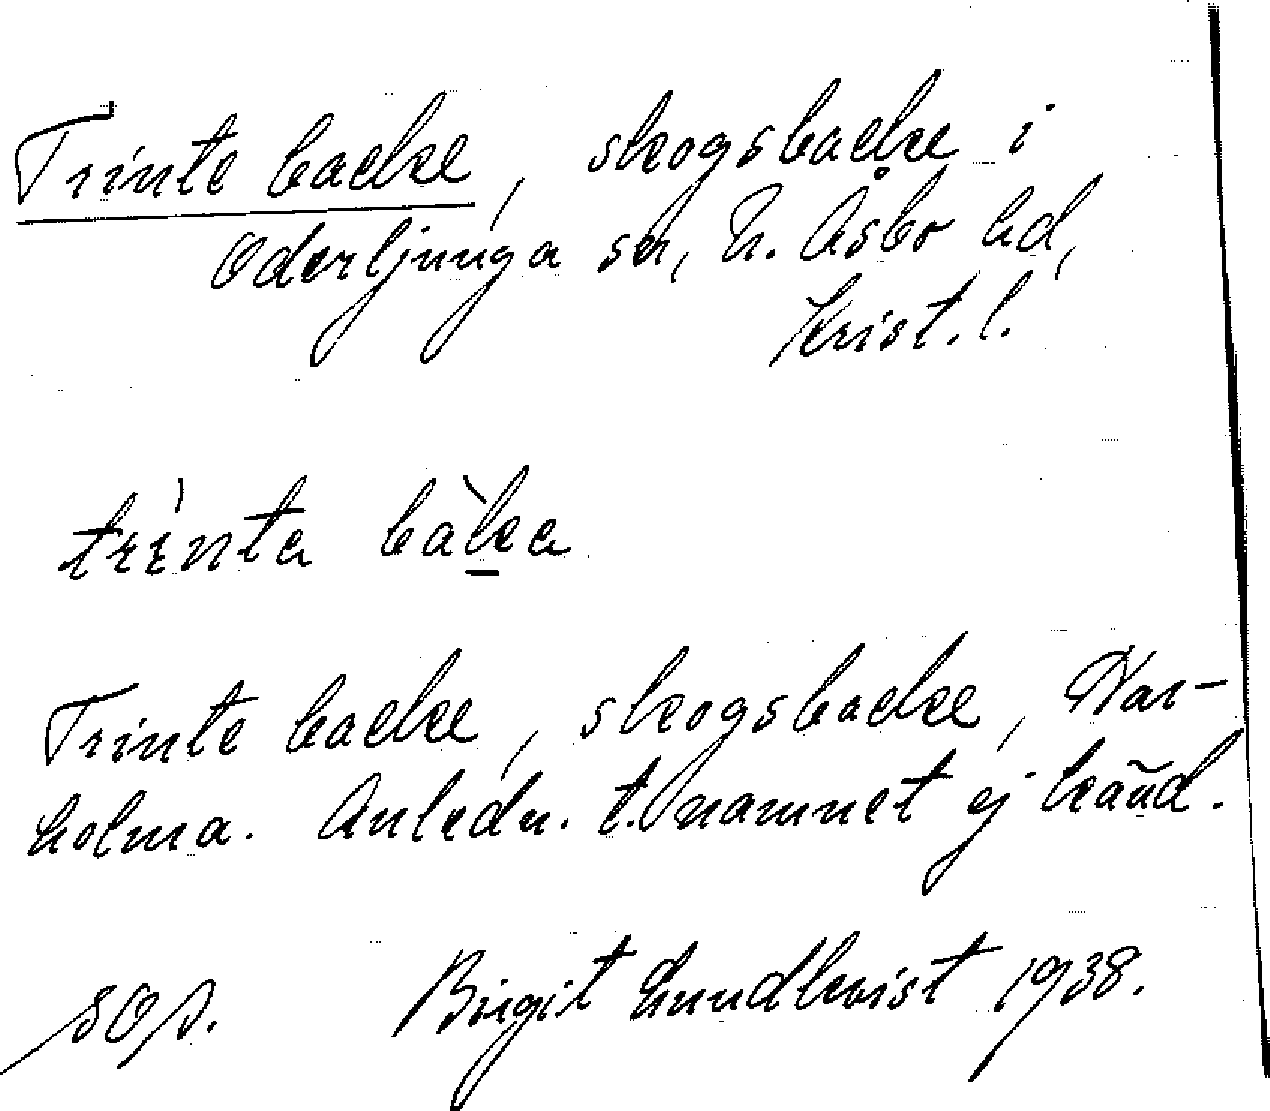 Trinte backe, skogsbacke i
Oderljunga sn, N. Åsbo hd,
Krist. l.
trinta bàka
Trinte backe, skogsbacke, Var-
holma. Anledn. t. namnet ej känd.
SOA. Birgit Lundkvist 1938.